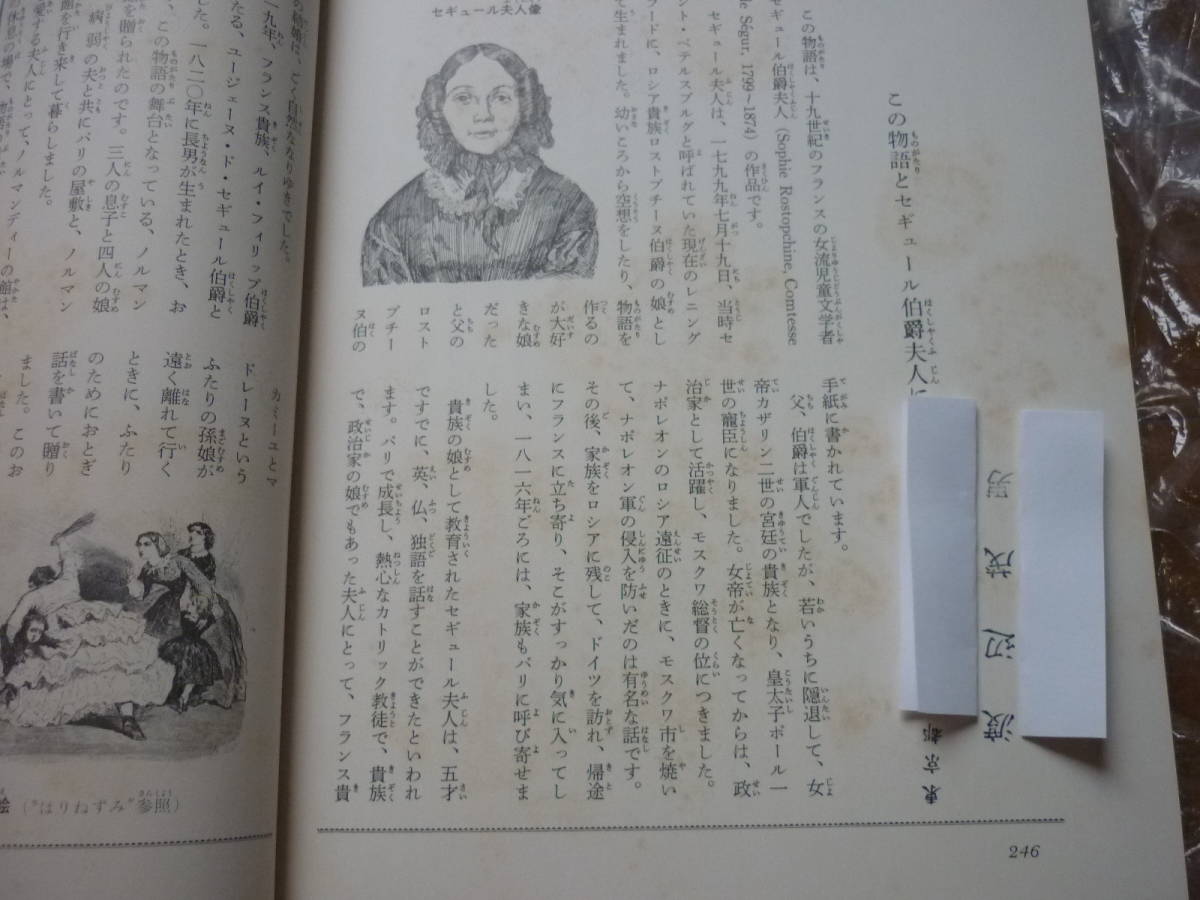 この物語とセギュール伯爵夫人に
東京都
渡辺茂男
この物語は、十九世紀のフランスの女流児童文学者
セギュール伯爵夫人 (Sophie Rostopchine, Comtesse
de Ségur, 1799~1874) の作品です。
セギュール夫人は、一七九九年七月十九日、当時セ
ント・ペテルスブルグと呼ばれていた現在のレニング
ラードに、ロシア貴族ロストプチーヌ伯爵の娘とし
て生まれました。幼いころから空想をしたり、物語を
作るの
が大好
きな娘
だった
と父の
ロスト
プチー
ヌ伯の
セギュール夫人像
手紙に書かれています。
父、伯爵は軍人でしたが、若いうちに隠退して、女
帝カザリン二世の宮廷の貴族となり、皇太子ポール一
世の寵臣になりました。女帝が亡くなってからは、政
治家として活躍し、モスクワ総督の位につきました。
ナポレオンのロシア遠征のときに、モスクワ市を焼い
て、ナポレオン軍の侵入を防いだのは有名な話です。
その後、家族をロシアに残して、ドイツを訪れ、帰途
にフランスに立ち寄り、そこがすっかり気に入ってし
まい、一八一六年ごろには、家族もパリに呼び寄せま
した。
貴族の娘として教育されたセギュール夫人は、五才
ですでに、英、仏、独語を話すことができたといわれ
ます。パリで成長し、熱心なカトリック教徒で、貴族
で、政治家の娘でもあった夫人にとって、フランス貴
246
の結婚は、ごく自然ななりゆきでした。
一九年、フランス貴族、ルイ・フィリップ伯爵
たる、ユージェーヌ・ド・セギュール伯爵と
した。一八二〇年に長男が生まれたとき、お
、この物語の舞台となっている、ノルマン
を贈られたのです。三人の息子と四人の娘
病弱の夫と共にパリの屋敷と、ノルマン
館を行き来して暮らしました。
愛する夫人にとって、ノルマンディーの館は、
カミーユとマ
ドレーヌという
ふたりの孫娘が
遠く離れて行く
ときに、ふたり
のためにおとぎ
話を書いて贈り
ました。このお
絵 (“はりねずみ”参照)